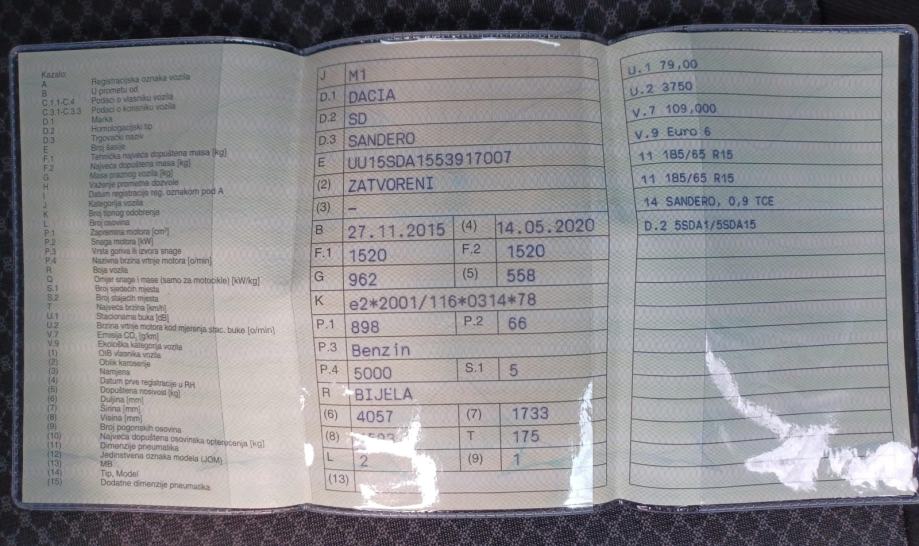 Kazalo:
A Registracijska oznaka vozila
B U prometu od
C.1.1-C.4 Podaci o vlasniku vozila
C.3.1-C.3.3 Podaci o korisniku vozila
D.1 Marka
D.2 Homologacijski tip
D.3 Trgovački naziv
E Broj šasije
F.1 Tehnička najveća dopuštena masa [kg]
F.2 Najveća dopuštena masa [kg]
G Masa praznog vozila [kg]
H Važenje prometne dozvole
I Datum registracije reg. oznakom pod A
J Kategorija vozila
K Broj tipnog odobrenja
L Broj osovina
P.1 Zapremina motora [cm³]
P.2 Snaga motora [kW]
P.3 Vrsta goriva ili izvora snage
P.4 Nazivna brzina vrtnje motora [o/min]
R Boja vozila
Q Omjer snage i mase (samo za motocikle) [kW/kg]
S.1 Broj sjedećih mjesta
S.2 Broj stajaćih mjesta
T Najveća brzina [km/h]
U.1 Stacionarna buka [dB]
U.2 Brzina vrtnje motora kod mjerenja stac. buke [o/min]
V.7 Emisija CO₂ [g/km]
V.9 Ekološka kategorija vozila
(1) OIB vlasnika vozila
(2) Oblik karoserije
(3) Namjena
(4) Datum prve registracije u RH
(5) Dopuštena nosivost [kg]
(6) Duljina [mm]
(7) Širina [mm]
(8) Visina [mm]
(9) Broj pogonskih osovina
(10) Najveća dopuštena osovinska opterećenja [kg]
(11) Dimenzije pneumatika
(12) Jedinstvena oznaka modela (JOM)
(13) MB
(14) Tip, Model
(15) Dodatne dimenzije pneumatika
J M1
D.1 DACIA
D.2 SD
D.3 SANDERO
E UU15SDA1553917007
(2) ZATVORENI
(3) –
B 27.11.2015 (4) 14.05.2020
F.1 1520 F.2 1520
G 962 (5) 558
K e2*2001/116*0314*78
P.1 898 P.2 66
P.3 Benzin
P.4 5000 S.1 5
R BIJELA
(6) 4057 (7) 1733
(8) T 175
L 2 (9) 1
(13)
U.1 79,00
U.2 3750
V.7 109,000
V.9 Euro 6
11 185/65 R15
11 185/65 R15
14 SANDERO, 0,9 TCE
D.2 5SDA1/5SDA15